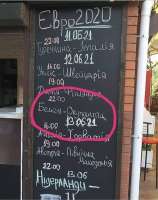 Евро2020
11.06.21
22:00
Туреччина-Італія
12.06.21
16:00
Уельс-Швейцарія
19:00
Данія-Фінляндія
22:00
Бельгія-
13.06.21
16:00
Англія-Хорватія
19:00
Австрія-Північна
Македонія
13.06
Нідерланди-